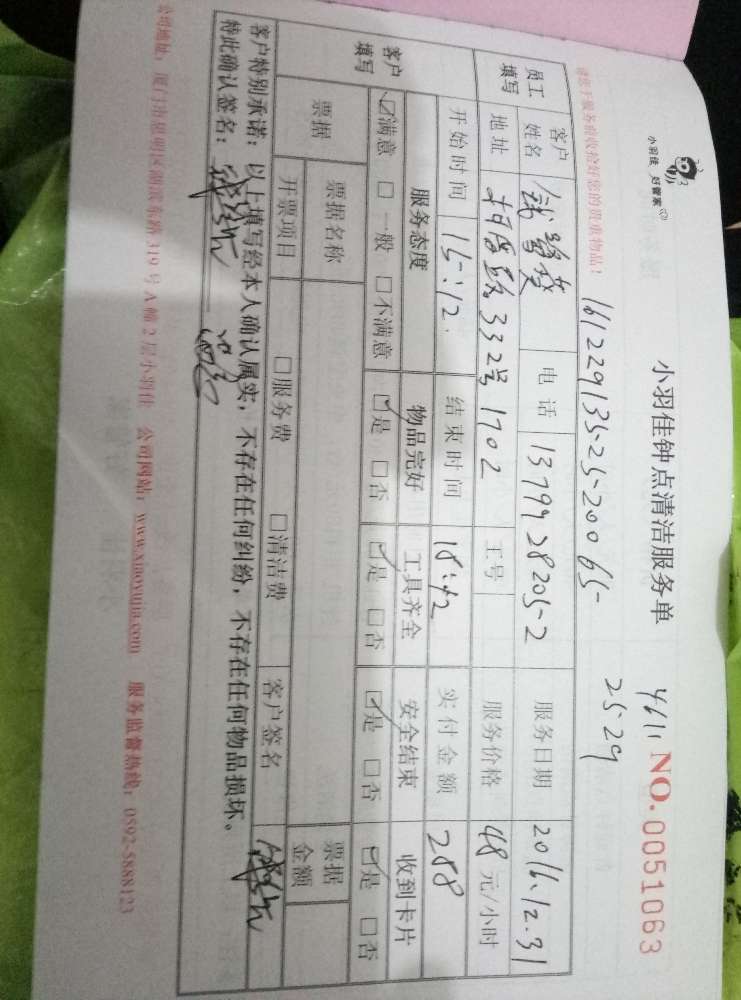 小羽佳 好管家
小羽佳钟点清洁服务单
NO.0051063
2529
请您于服务前收拾好您的贵重物品!
员工填写
客户姓名
电话 13799282052
服务日期 2016.12.31
地址 332号1702
工号
服务价格 48 元/小时
开始时间 15:12
结束时间 18:42
实付金额 288
客户填写
服务态度 物品完好 工具齐全 安全结束 收到卡片
☑满意 □一般 □不满意 ☑是 □否 ☑是 □否 ☑是 □否 ☑是 □否
票据
票据名称
票据金额
开票项目 □服务费 □清洁费 客户签名
客户特别承诺:以上填写经本人确认属实,不存在任何纠纷,不存在任何物品损坏。
特此确认签名:
公司地址:厦门市思明区湖滨东路319号A幢2层小羽佳 公司网站:www.xiaoyujia.com 服务监督热线:0592-5888123